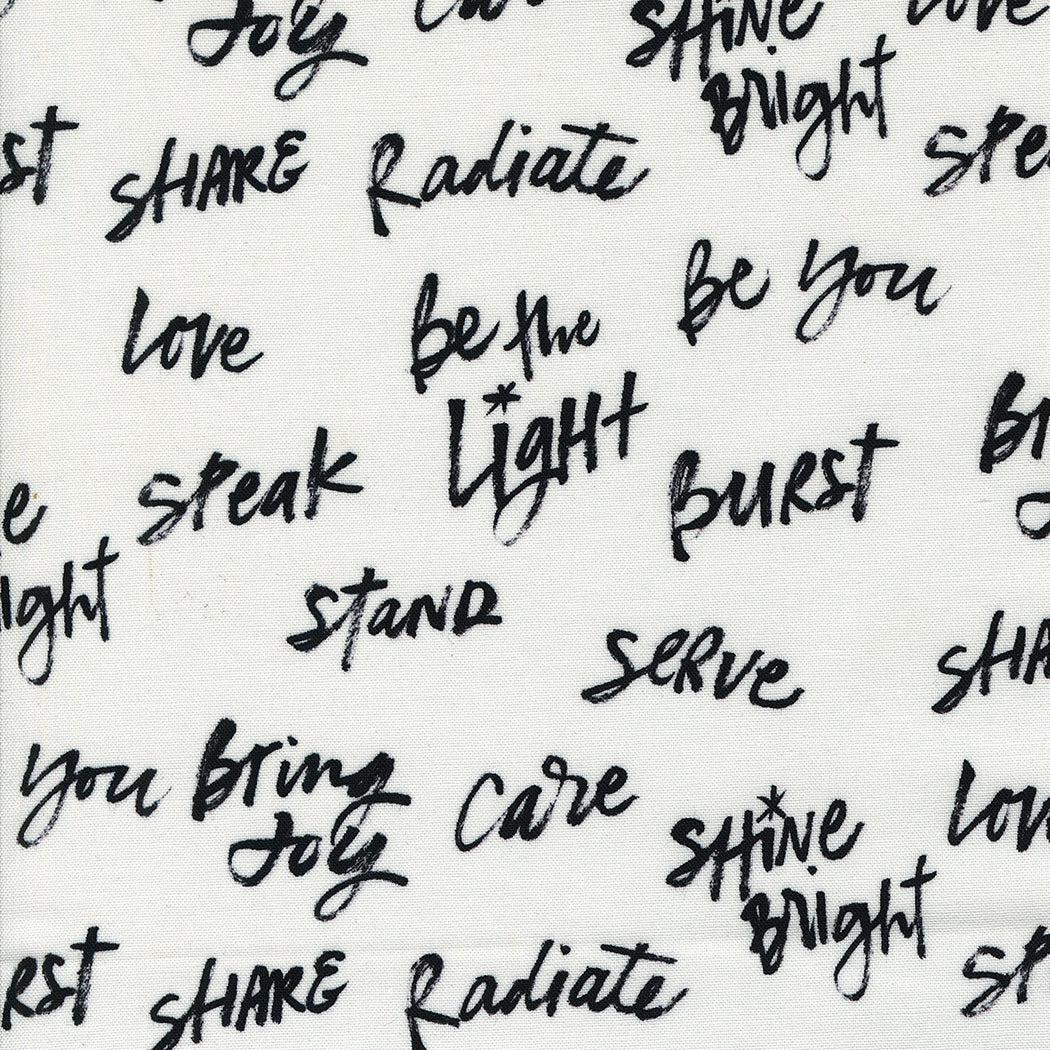 Joy
Care
SHINE
Love
Bright
ST
SHARE
Radiate
Spe
Be You
Love
Be the
Light
Br
Speak
BURST
e
ight
Stand
Serve
SHA
You
Bring
Joy
Care
SHINE
Lov
Bright
RST
SHARE
Radiate
SP